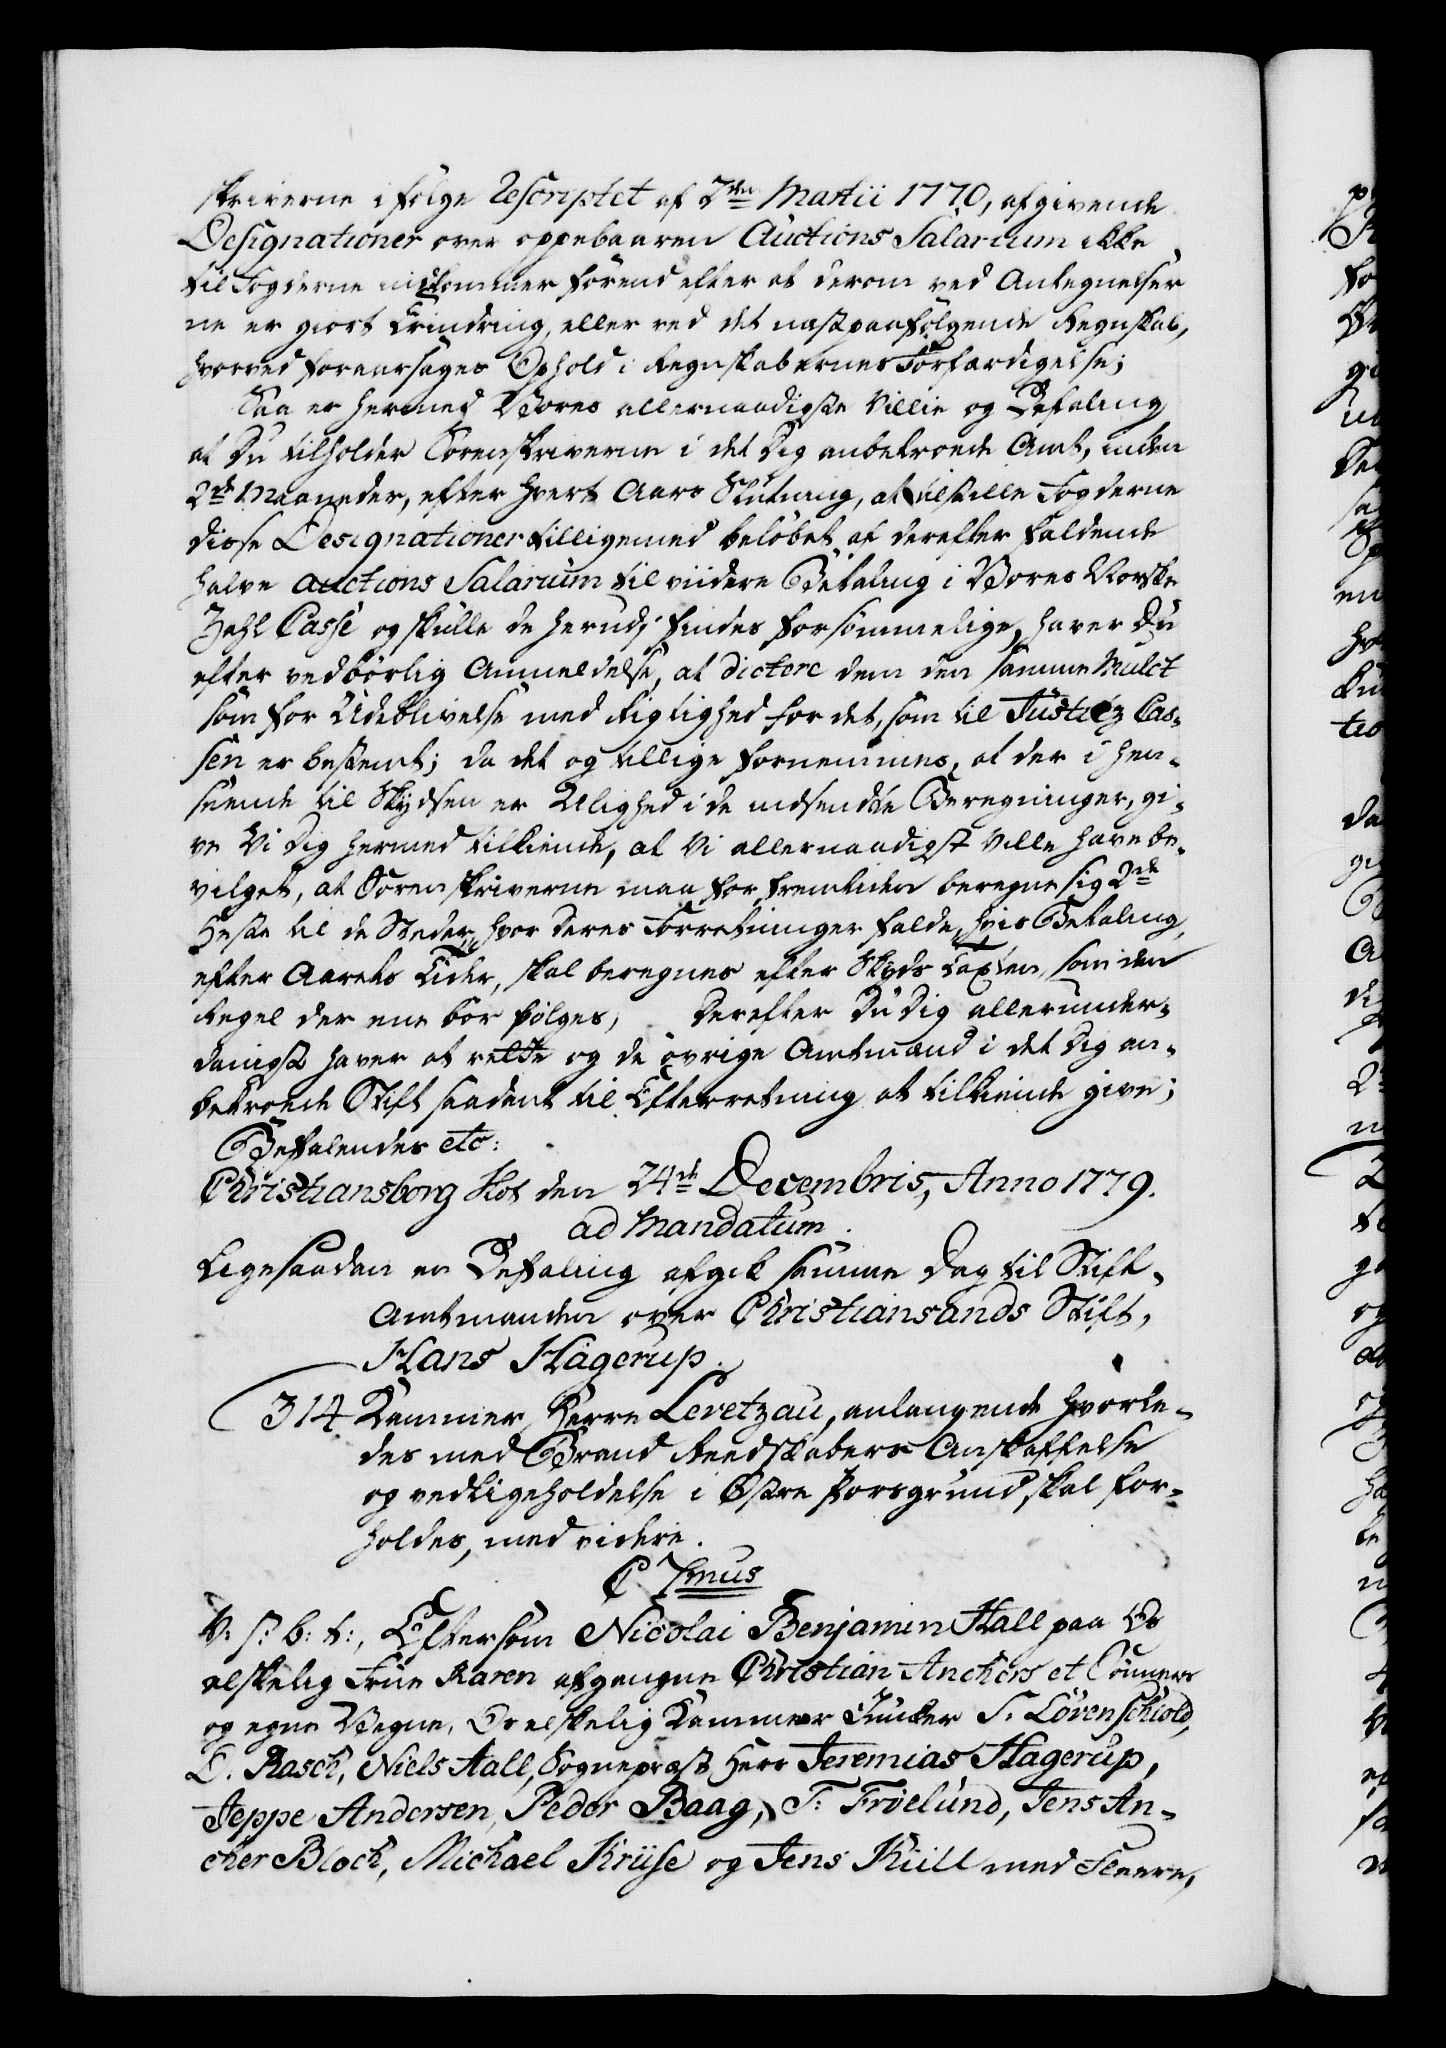 skriverne i følge Rescriptet af 7de Martii 1770, afgivende
Designationer over oppebaaren Auctions Salarium ikke
til Fogderne indkommer förend efter at derom ved Antegnelser
ne er giort Erindring, eller ved det næstpaafølgende Regnskab,
hvorved foraarsages Ophold i Regnskabernes Forfærdigelse;
Saa er hermed Vores allernaadigste Villie og Befaling
at Du tilholder Sorenskriverne i det Dig anbetroede Amt, inden
2de Maaneder, efter hvert Aars Slutning, at tilstille Fogderne
disse Designationer tilligemed beløbet af derefter faldende
halve Auctions Salarium til viidere Betaling i Vores Norske
Zahl Casse og skulle de herudj findes forsømmelige, haver Du
efter vedbörlig Anmeldelse, at dictere dem den samme Mulct
som for Udeblivelse med Rigtighed for det, som til Justitz Cas-
sen er bestemt; da det og tillige fornemmes, at der i Hen-
seende til Skydsen er Ulighed i de indsendte Beregninger, gi-
ve Vi Dig hermed tilkiende, at Vi allernaadigst ville have be-
vilget, at Sorenskriverne maa for fremtiden beregne sig 2de
Heste til de Steder, hvor deres Forretninger falde, hvis Betaling,
efter Aarets Tider, skal beregnes efter Skyds Taxten, som den
Regel der ene bör følges, Derefter Du Dig allerunder-
danigst haver at rette og de øvrige Amtmænd i det Dig an-
betroede Stift saadant til Efterretning at tilkiende give;
Befalendes etc:
Christiansborg Slot den 24de Decembris, Anno 1779.
ad Mandatum.
Ligesaadan en Befaling afgik samme Dag til Stift-
Amtmanden over Christiansands Stift,
Hans Hagerup.
314 Kammer Herre Levetzau, anlangende hvorle-
des med Brand Reedskabers Anskaffelse
og vedligeholdelse i Østre Porsgrund, skal for-
holdes, med videre.
C 7mus
V: S: b: t:, Eftersom Nicolai Benjamin Aall paa Os
elskelig Frue Karen afgangne Christian Anchers et Sønners
og egne Vegne, Os elskelig Kammer Junker S. Løvenschiold,
D. Rasch, Niels Aall, Sogneprest Herr Jeremias Hagerup,
Jeppe Andersen, Peder Baag, F: Frøelund, Jens An-
cher Bloch, Michael Kruse og Jens Kiill med Fleere,